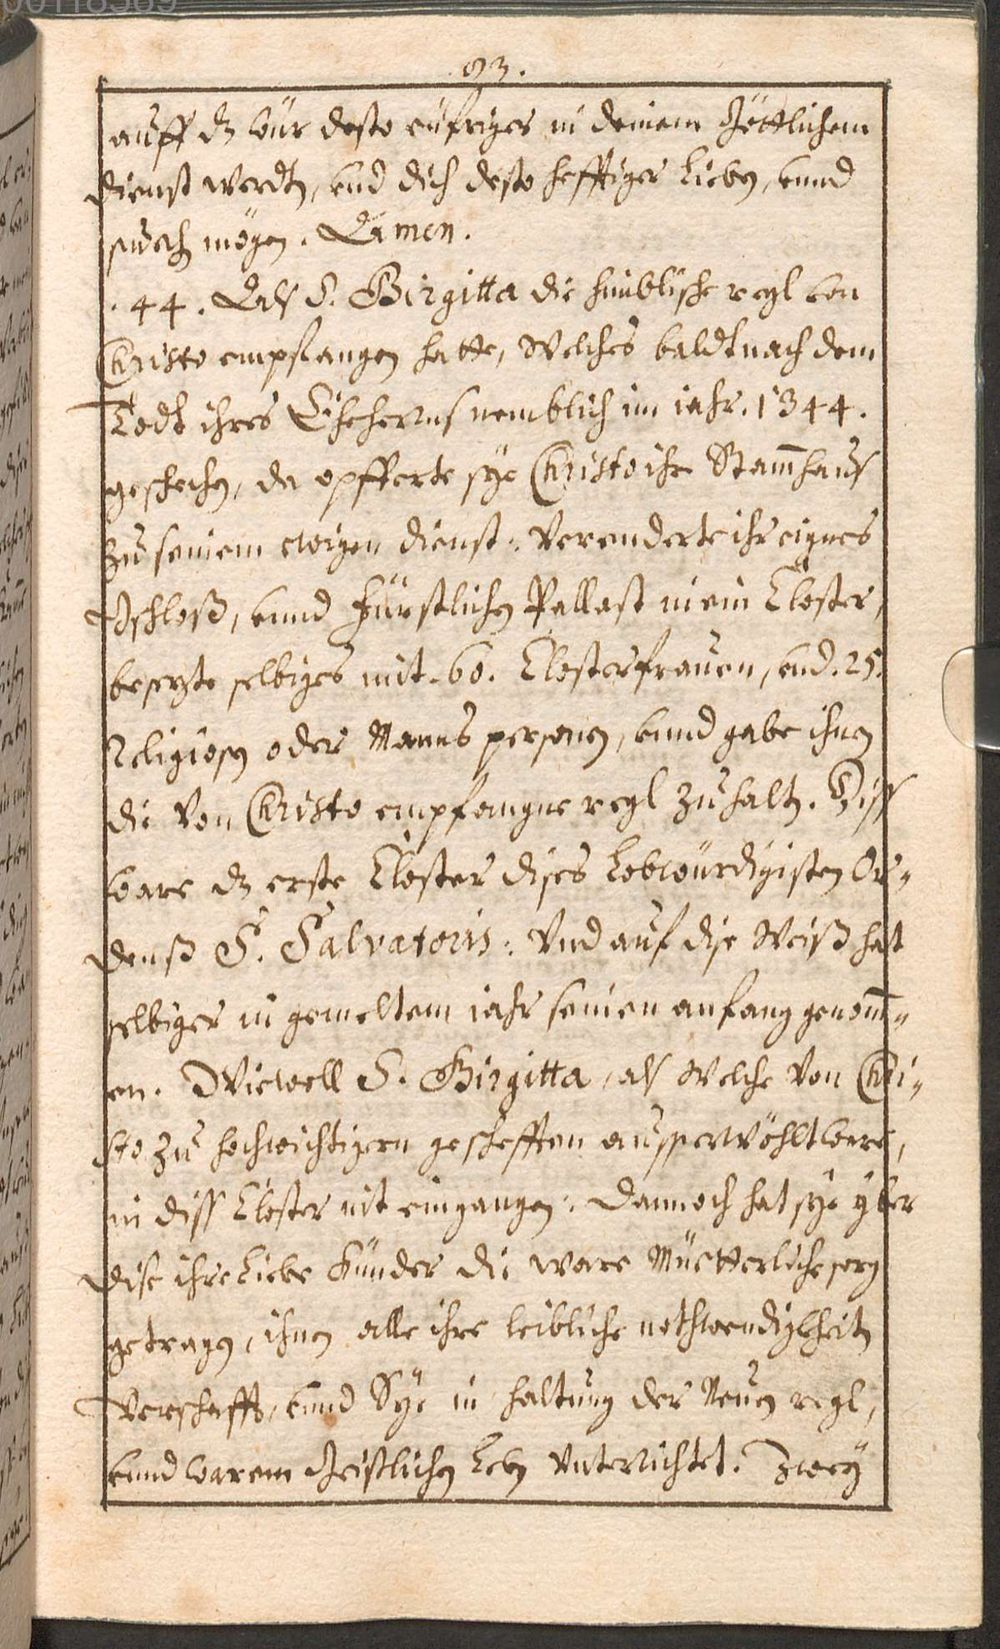 00118369
93.
auff dz wür desto eüfriger in deinem Göttlichem
dienst werdtn, und dich desto hefftiger Lieben, vnnd
suechen mögen. Amen.
. 44. Als S. Birgitta die himblische regl von
Christo empfangen hatte, Welches baldt nach dem
Todt ihres Eheherrns nemblich im iahr. 1344.
geschechen, da opfferte sye Christo ihr Stam̄haus
zu seinem ewigen dienst: Verenderte ihr eignes
Schloß, vnnd Fürstlichen Pallast in ein Closter,
besezte selbiges mit. 60. Closterfrauen, vnd. 25.
Religiosen oder Manns personen, vnnd gabe ihnen
die Von Christo empfangne regl zuhaltn. Diss
ware dz erste Closter dises Lobwürdigisten Or„
denß S. Salvatoris: Vnd auf dise Weiß hat
selbiger in gemeltem iahr seinen anfang genom̄„
en. Wiewoll S. Birgitta, als Welche Von Chri„
sto zu hochwichtigern geschefften ausserwöhlt ware,
in diss Closter nit eingangen: Dannoch hat sye yber
dise ihre Liebe Künder die ware Müetterliche sorg
getragen, ihnen alle ihre leibliche nothwendigkheitn
Verschafft, vnnd Sye in haltung der Neuen regl,
vnnd warem Geistlichen Leben Vnterrichtet. Zwey